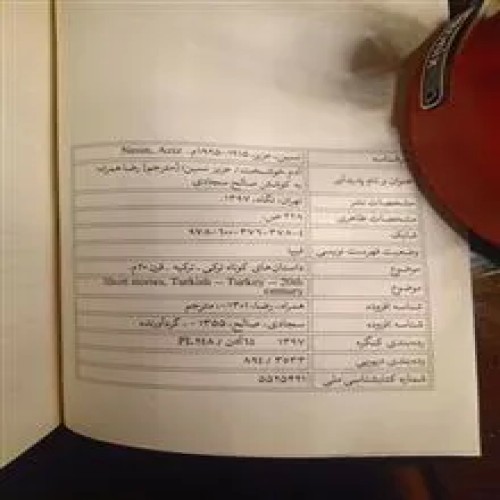 سرشناسه نسین، عزیز، ۱۹۱۵-۱۹۹۵م. Nesin, Aziz
عنوان و نام پدیدآور آدم خوشبخت / عزیز نسین؛ [مترجم] رضا همراه؛
به کوشش صالح سجادی.
مشخصات نشر تهران، نگاه، ۱۳۹۷.
مشخصات ظاهری ۲۲۸ ص.
شابک ۹۷۸-۶۰۰-۳۷۶-۳۷۸-۴
وضعیت فهرست نویسی فیپا
موضوع داستان‌های کوتاه ترکی ـ ترکیه ـ قرن ۲۰م.
موضوع Short stories, Turkish -- Turkey -- 20th
century
شناسه افزوده همراه، رضا، ۱۳۰۱-، مترجم
شناسه افزوده سجادی، صالح، ۱۳۵۵ -، گردآورنده
رده‌بندی کنگره ۱۳۹۷ PL ۲۴۸ /
رده‌بندی دیویی ۸۹۴ / ۳۵۳۳
شماره کتابشناسی ملی ۵۵۲۵۴۹۱